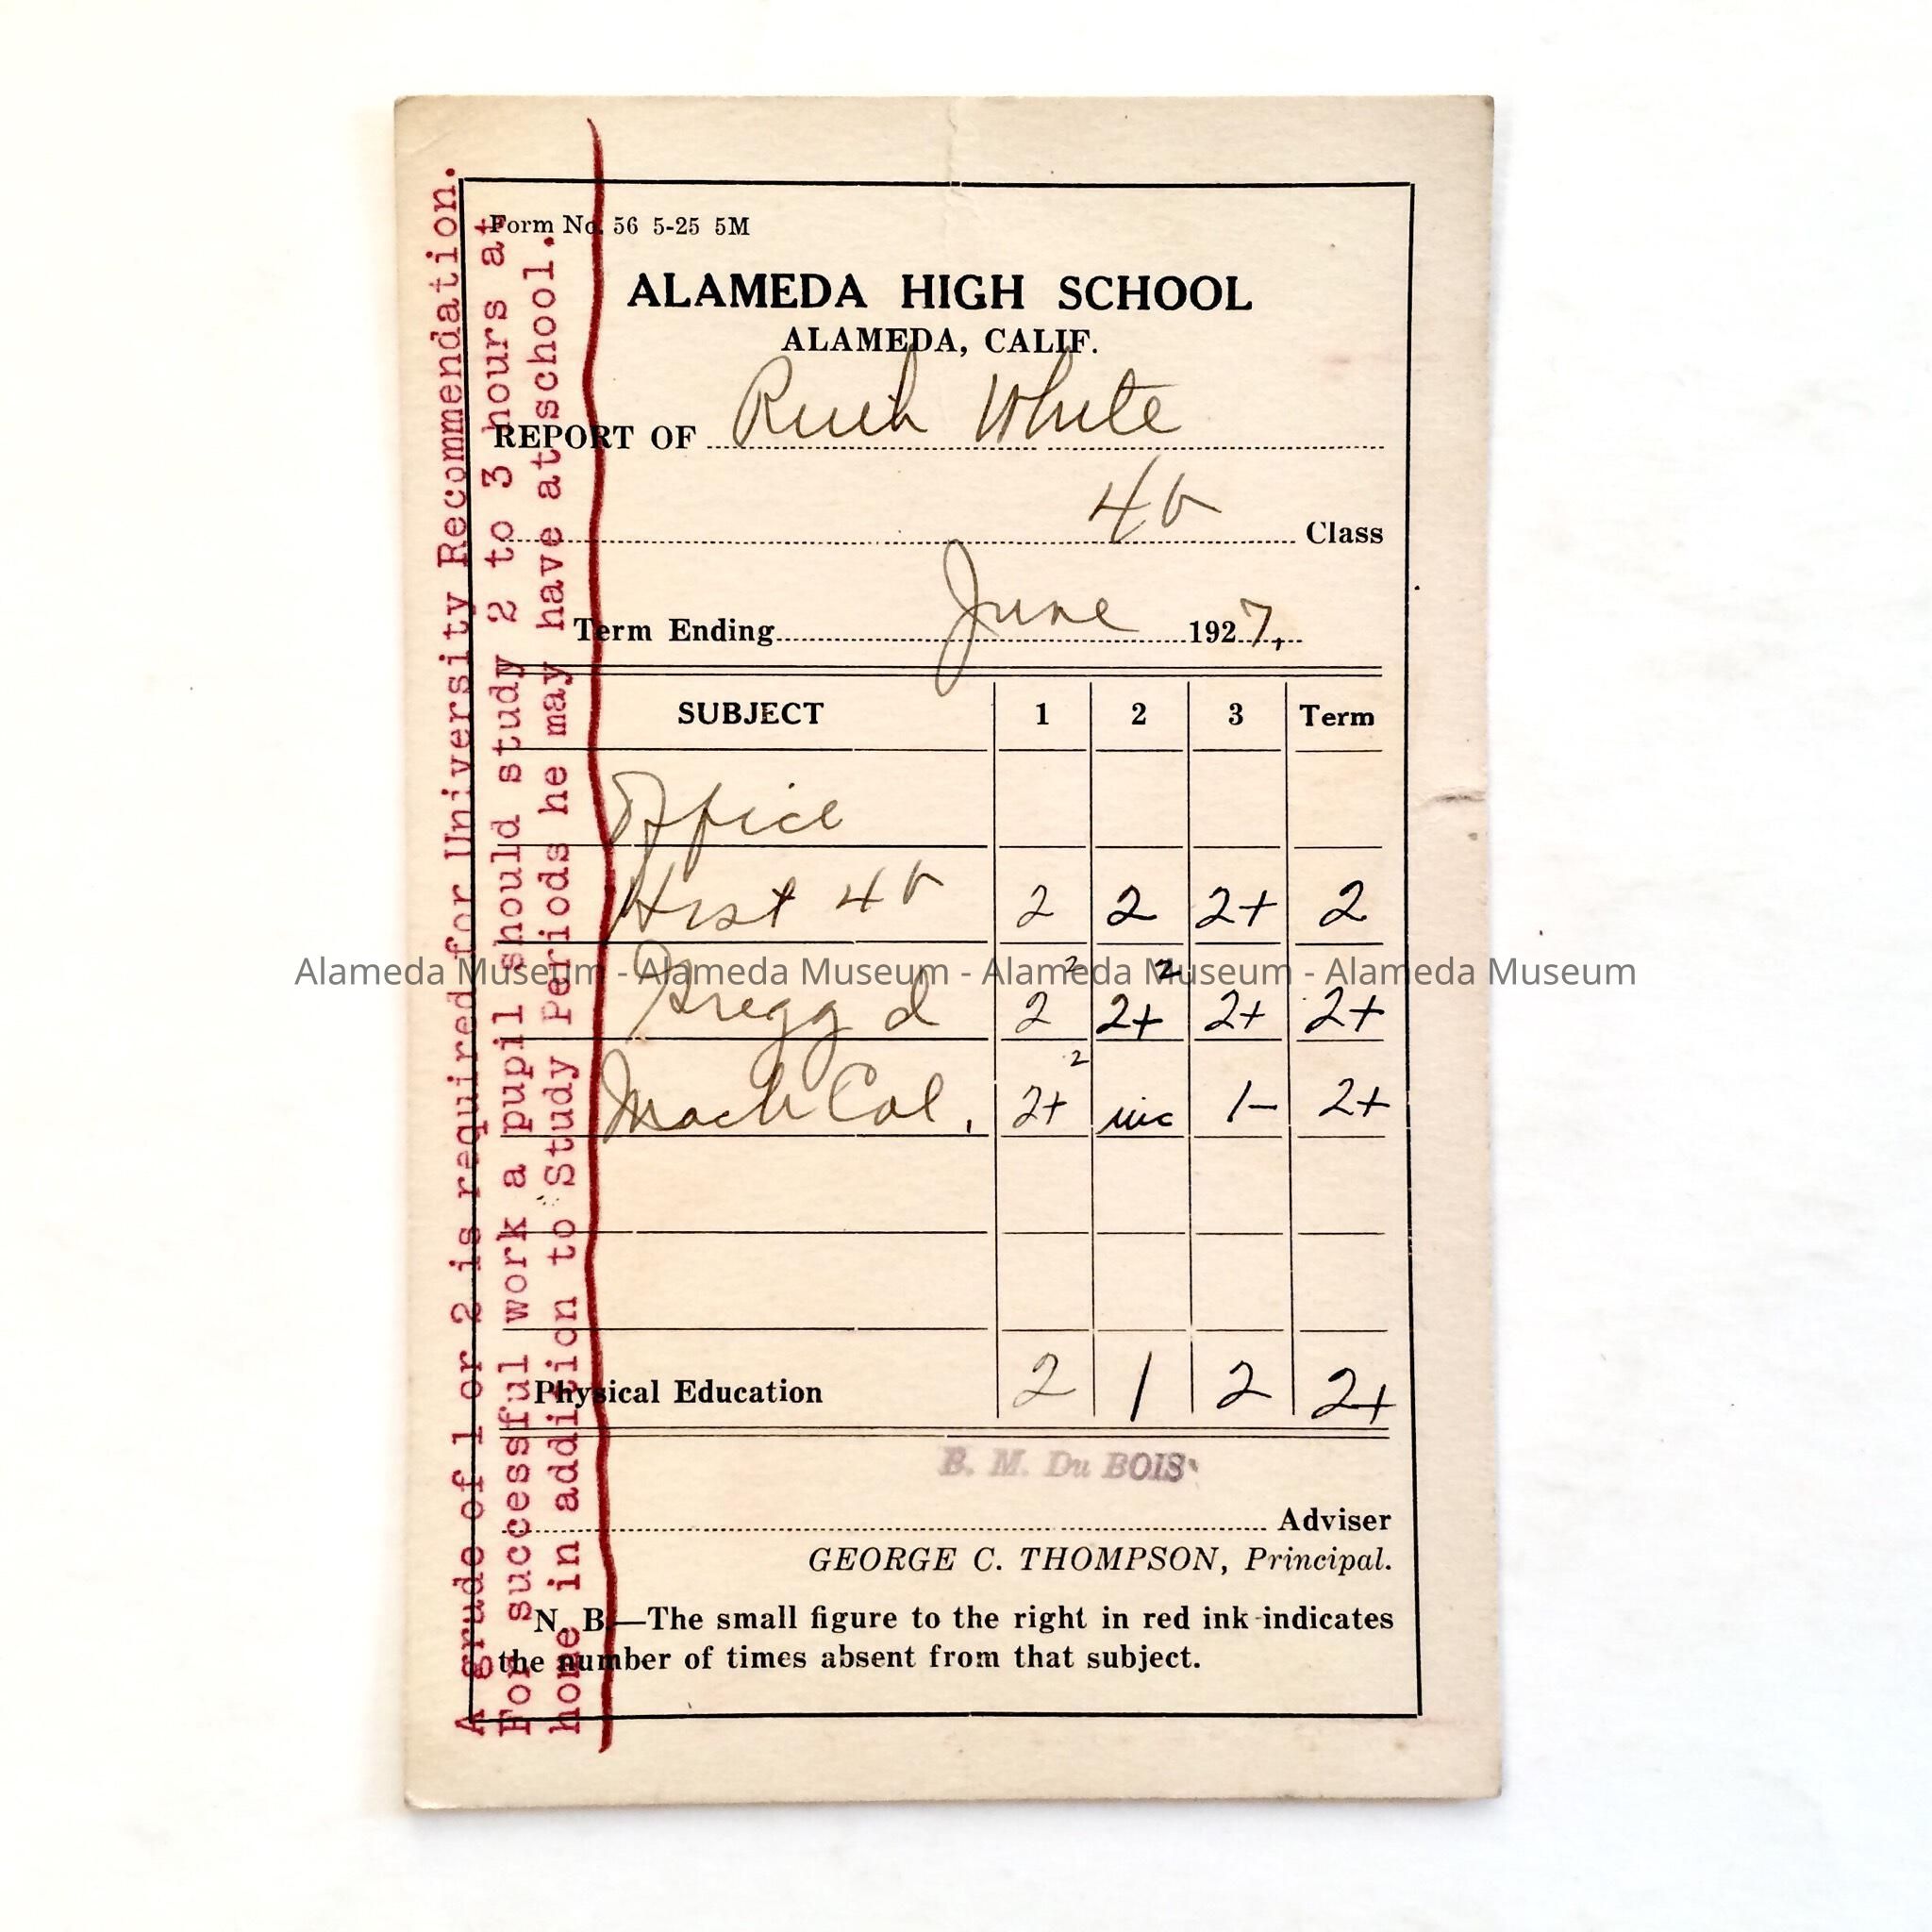 Form No. 56 5-25 5M
ALAMEDA HIGH SCHOOL
ALAMEDA, CALIF.
REPORT OF Ruth White
4b Class
Term Ending June 1927,
SUBJECT 1 2 3 Term
Office
Hist 4b 2 2 2+ 2
Alameda Museum - Alameda Museum - Alameda Museum - Alameda Museum
Gregg d 2 2 2+ 2 2+ 2+
Mach Cal. 2+ 2 inc 1- 2+
Physical Education 2 1 2 2+
B. M. Du BOIS
Adviser
GEORGE C. THOMPSON, Principal.
N. B.—The small figure to the right in red ink indicates
the number of times absent from that subject.
A grade of 1 or 2 is required for University Recommendation.
For successful work a pupil should study 2 to 3 hours at
home in addition to Study Periods he may have at school.